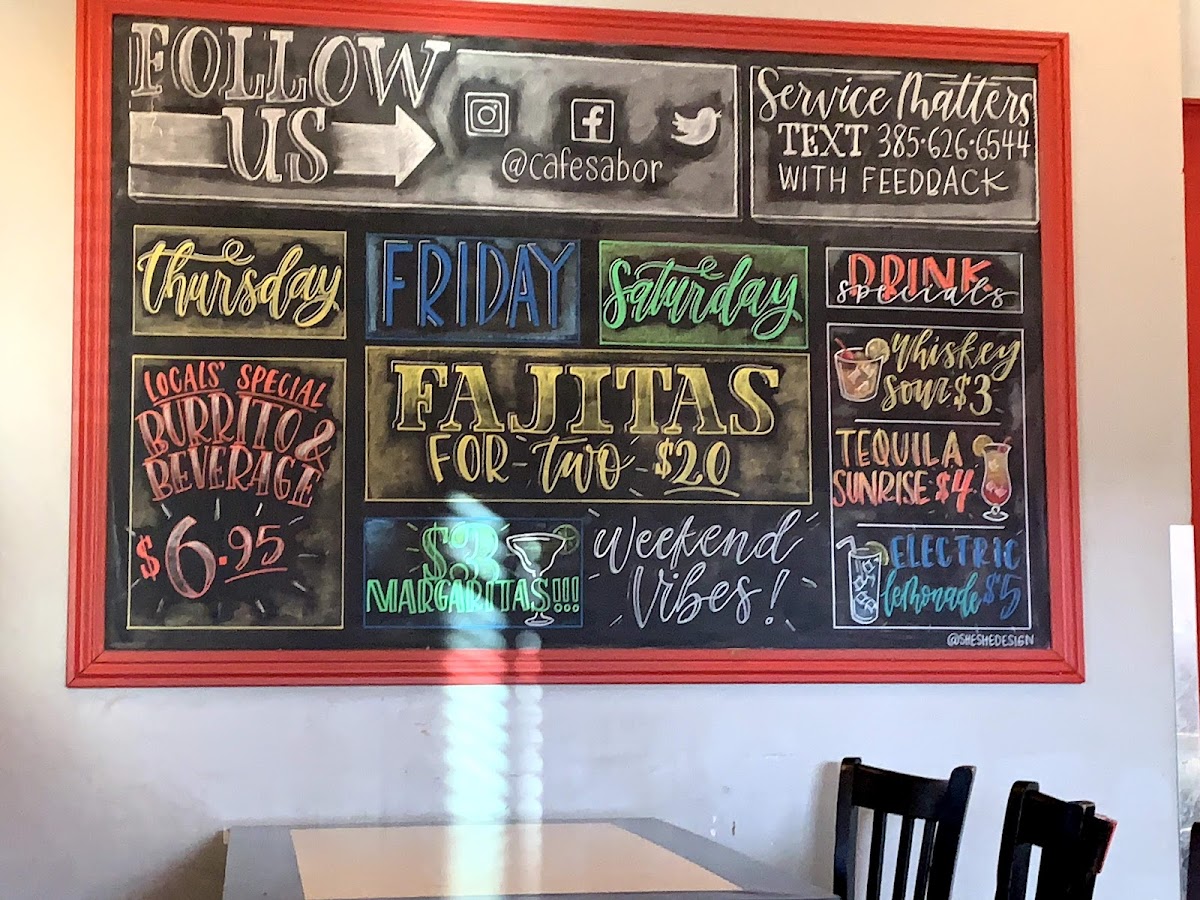 FOLLOW
US
@cafesabor
Service Matters
TEXT 385·626·6544
WITH FEEDBACK
Thursday
FRIDAY
Saturday
DRINK
specials
LOCALS' SPECIAL
BURRITO &
BEVERAGE
$6.95
FAJITAS
FOR two $20
$3
MARGARITAS!!!
Weekend
Vibes!
Whiskey
Sour $3
TEQUILA
SUNRISE $4
ELECTRIC
lemonade $5
@SHESHEDESIGN